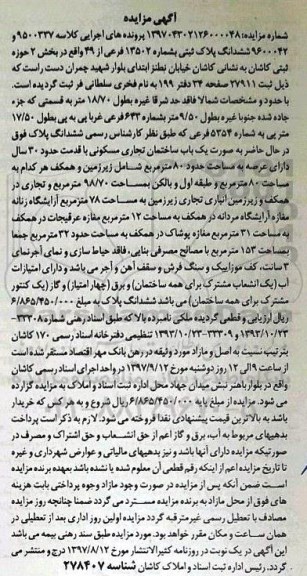 آگهی مزایده
شماره مزایده: ۱۳۹۷۰۴۳۰۲۱۲۶۰۰۰۰۴۸ پرونده های اجرایی کلاسه ۹۵۰۰۳۳۷ و
۹۶۰۰۰۴۲ ششدانگ پلاک ثبتی بشماره ۱۳۵۰۲ فرعی از ۴۹ واقع در بخش ۲ حوزه
ثبتی کاشان به نشانی کاشان خیابان نطنز ابتدای بلوار شهید چمران دست راست که
ذیل ثبت ۲۷۹۱۱ صفحه ۳۴ دفتر ۱۹۹ به نام فخری سلطانی فر ثبت گردیده است.
با حدود و مشخصات شمالا فاقد حد شرقا غیره بطول ۱۸/۷۰ متر به قسمتی که جزء
جاده شده جنوبا غیره بطول ۹/۵۰ متر بشماره ۶۴۳ فرعی غربا پی به پی بطول ۱۷/۵۰
متر پی به شماره ۵۳۵۴ فرعی که طبق نظر کارشناس رسمی ششدانگ پلاک فوق
در حال حاضر به صورت یک باب ساختمان تجاری مسکونی با قدمت حدود ۳۰ سال
دارای عرصه به مساحت حدود ۸۰ مترمربع شامل زیرزمین و همکف هر کدام به
مساحت ۸۰ مترمربع و طبقه اول و بالکن بمساحت ۹۸/۷۰ مترمربع و تجاری در
همکف و زیرزمین انباری تجاری زیرزمین به مساحت ۷۸ مترمربع آرایشگاه زنانه
مغازه آرایشگاه مردانه در همکف به مساحت ۱۲ مترمربع مغازه عرقیجات در همکف
به مساحت ۳۱ مترمربع مغازه پوشاک در همکف به مساحت حدود ۳۲ مترمربع جمعا
بمساحت ۱۵۳ مترمربع با مصالح مصرفی بنایی، فاقد حیاط سازی و نمای آجرنمای
۳ سانت، کف موزاییک و سنگ فرش و سقف آهن و آجر می باشد و دارای امتیازات
آب (یک انشعاب مشترک برای همه ساختمان) و برق (چهار امتیاز) و گاز (یک کنتور
مشترک برای همه ساختمان) می باشد ششدانگ پلاک به مبلغ ۶/۸۶۵/۴۵۰/۰۰۰
ریال ارزیابی و قطعی گردیده ملکی نامبرده بالا که طبق اسناد رهنی شماره ۳۳۳۰۸-
۱۳۹۳/۱۰/۲۳ و ۳۳۳۰۹-۱۳۹۳/۱۰/۲۳ تنظیمی دفترخانه اسناد رسمی ۱۷۰ کاشان
بترتیب نسبت به اصل و مازاد مورد وثیقه در رهن بانک مهر اقتصاد مستقر شده است
از ساعت ۹ الی ۱۲ روز دوشنبه مورخ ۱۳۹۷/۹/۱۲ در واحد اجرای اسناد رسمی کاشان
واقع در بلوار باهنر نبش میدان جهاد محل اداره ثبت اسناد و املاک به مزایده گزارده
می شود. مزایده از مبلغ پایه ۶/۸۶۵/۴۵۰/۰۰۰ ریال شروع و به هر کس که خریدار
باشد به بالاترین قیمت پیشنهادی نقدا فروخته می شود. لازم به ذکر است پرداخت
بدهیهای مربوط به آب، برق و گاز اعم از حق انشعاب و حق اشتراک و مصرف در
صورتیکه مزایده دارای آنها باشد و نیز بدهیهای مالیاتی و عوارض شهرداری و غیره
تا تاریخ مزایده اعم از اینکه رقم قطعی آن معلوم شده یا نشده باشد بعهده برنده مزایده
است ضمن آنکه پس از مزایده در صورت وجود مازاد وجوه پرداختی بابت هزینه
های فوق از محل مازاد به برنده مزایده مسترد می گردد ضمنا چنانچه روز مزایده
مصادف با تعطیل رسمی غیرمترقبه گردد مزایده اولین روز اداری بعد از تعطیلی در
همان ساعت و مکان مقرر خواهد بود. مورد مزایده طبق سند رهنی بیمه می باشد
این آگهی در یک نوبت در روزنامه کثیرالانتشار مورخ ۱۳۹۷/۸/۱۲ درج و منتشر می
گردد. رئیس اداره ثبت اسناد و املاک کاشان شناسه ۲۷۸۴۰۷